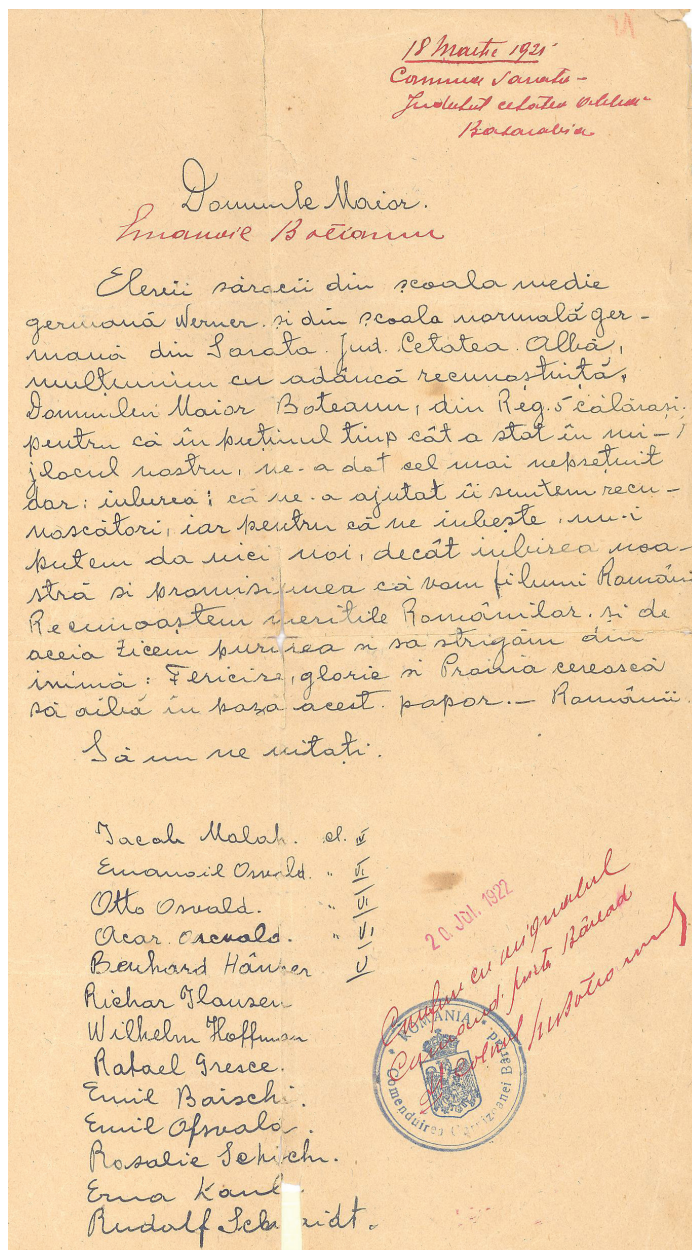 21
18 Martie 1921
Comuna Sarata -
Judetul cetatea albă
Basarabia
Domnule Maior.
Emanoil Boteanu
Elevii săracii din școala medie
germană Werner și din școala normală ger-
mană din Sarata Jud. Cetatea Albă,
mulțumim cu adâncă recunoștiință,
Domnului Maior Boteanu, din Reg. 5 călărași.
pentru că în puținul timp cât a stat în mi-
jlocul nostru, ne-a dat cel mai neprețuit
dar: iubirea; că ne-a ajutat îi suntem recu-
noscători, iar pentru că ne iubește, nu-i
putem da nici noi, decât iubirea noa-
stră si promisiunea că vom fi buni Români
Recunoaștem meritile Românilor și de
aceia zicem purirea si sa strigăm din
inimă: Fericire, glorie si Pronia cerească
să aibă în pază acest popor. — Românii.
Să nu ne uitați.
Iacob Malah. cl. IV
Emanoil Osvald. " VI
Otto Osvald. " VI
Ocar. Oscvald. " VI
Benhard Hänßer V
Richar Ilausen
Wilhelm Hoffman
Rafael Gresce.
Emil Baischi.
Emil Ofsvald.
Rosalie Schich.
Erna Kaul.
Rudolf Schmidt.
20 JUL. 1922
Conform cu originalul
Comand. Bârlad
Colonel
* ROMÂNIA *
Comenduirea Garnizoanei Bârlad